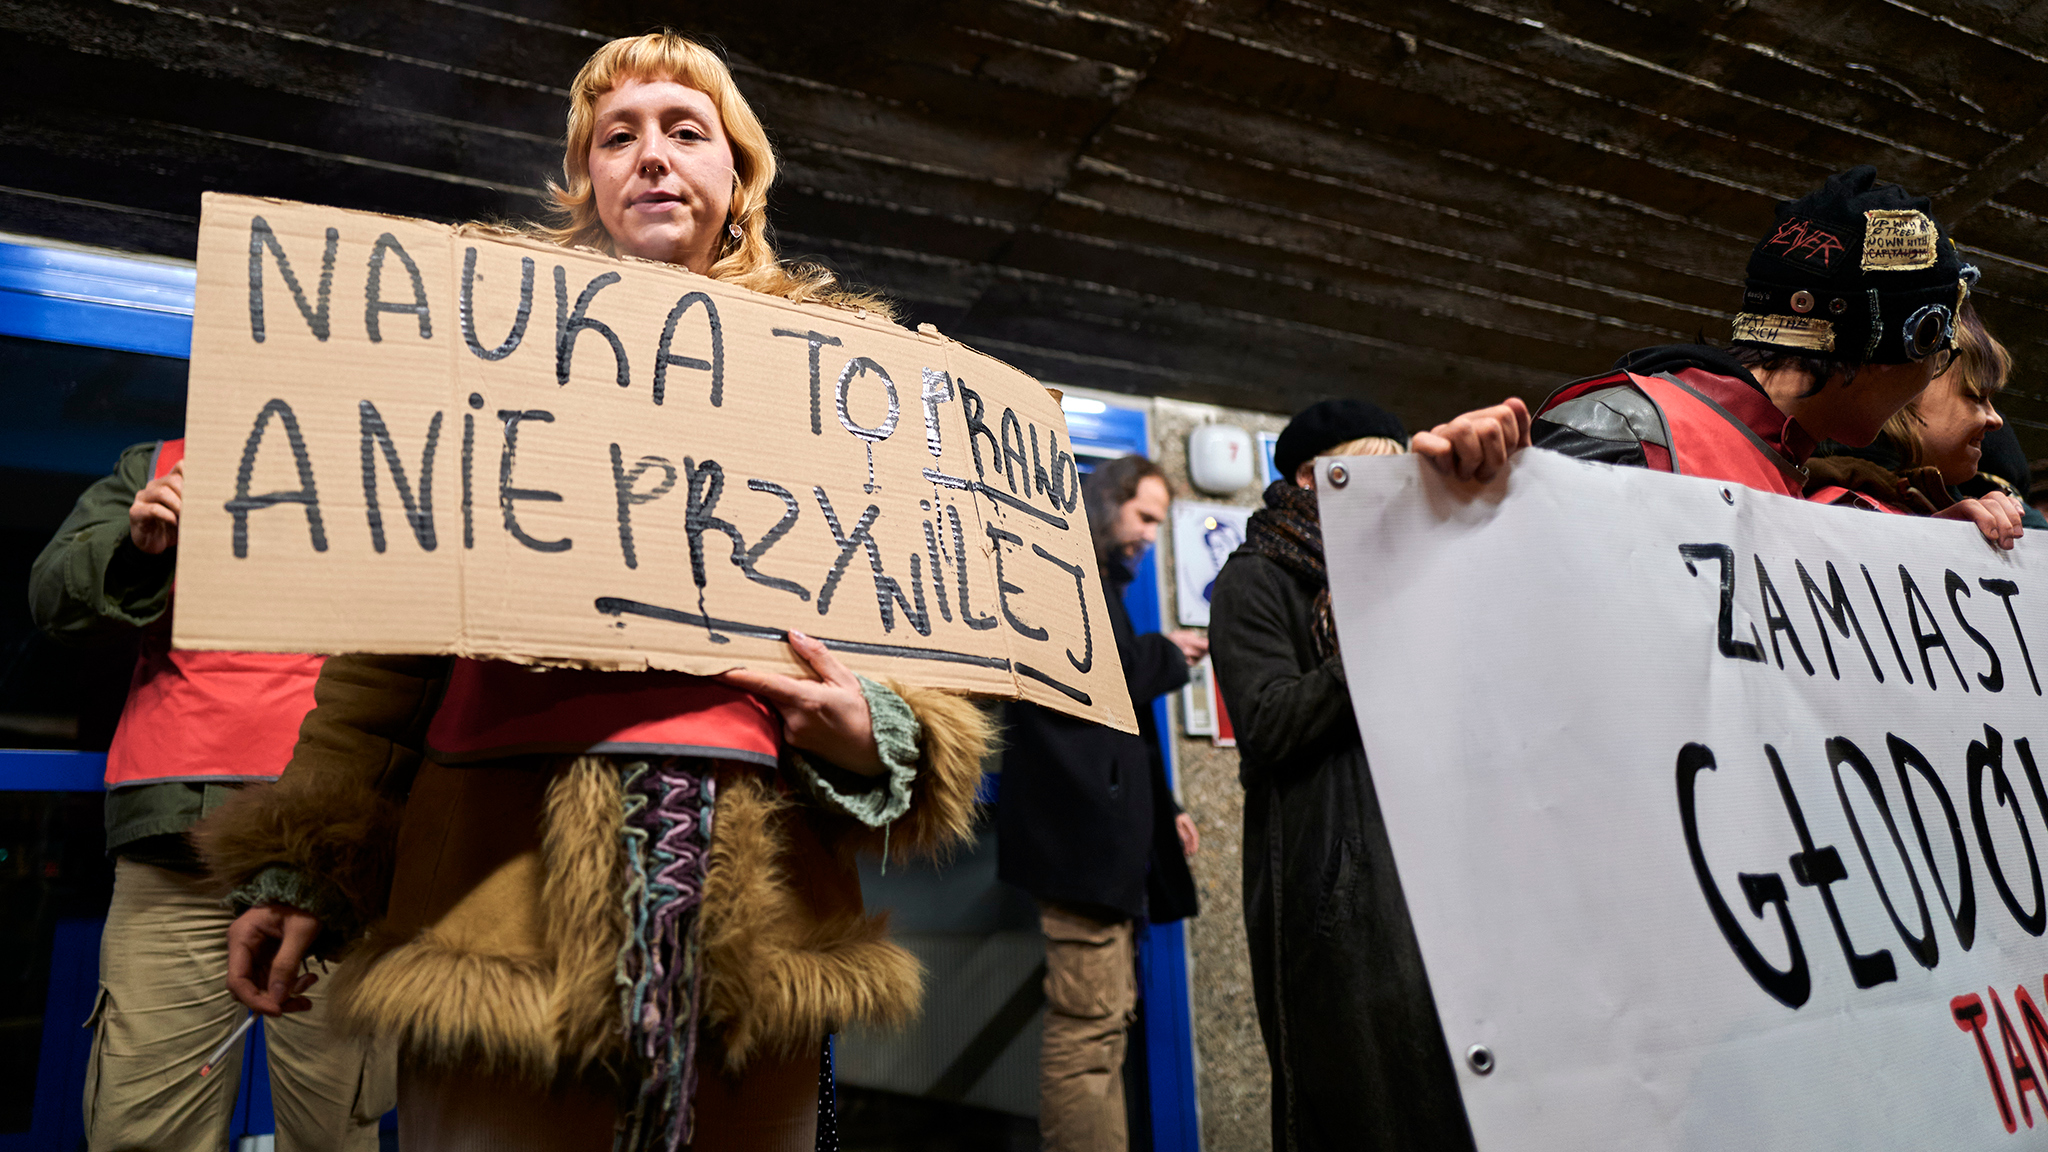 NAUKA TO PRAWO
A NIE PRZYWILEJ
SLAYER
UP WITH
TREES
DOWN WITH
CAPITALISM
RICH
7
ZAMIAST
GŁODÓ
TAN